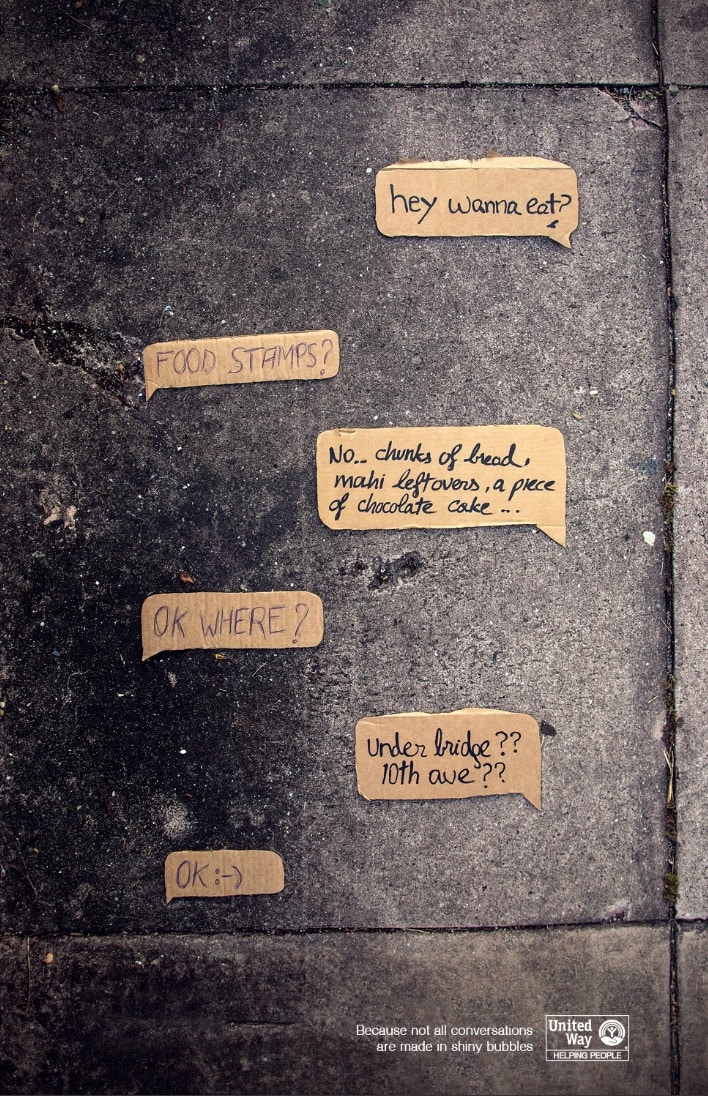 hey wanna eat?
FOOD STAMPS?
No... chunks of bread,
mahi leftovers, a piece
of chocolate cake ...
OK WHERE?
under bridge??
10th ave??
OK :-)
Because not all conversations
are made in shiny bubbles
United
Way
HELPING PEOPLE